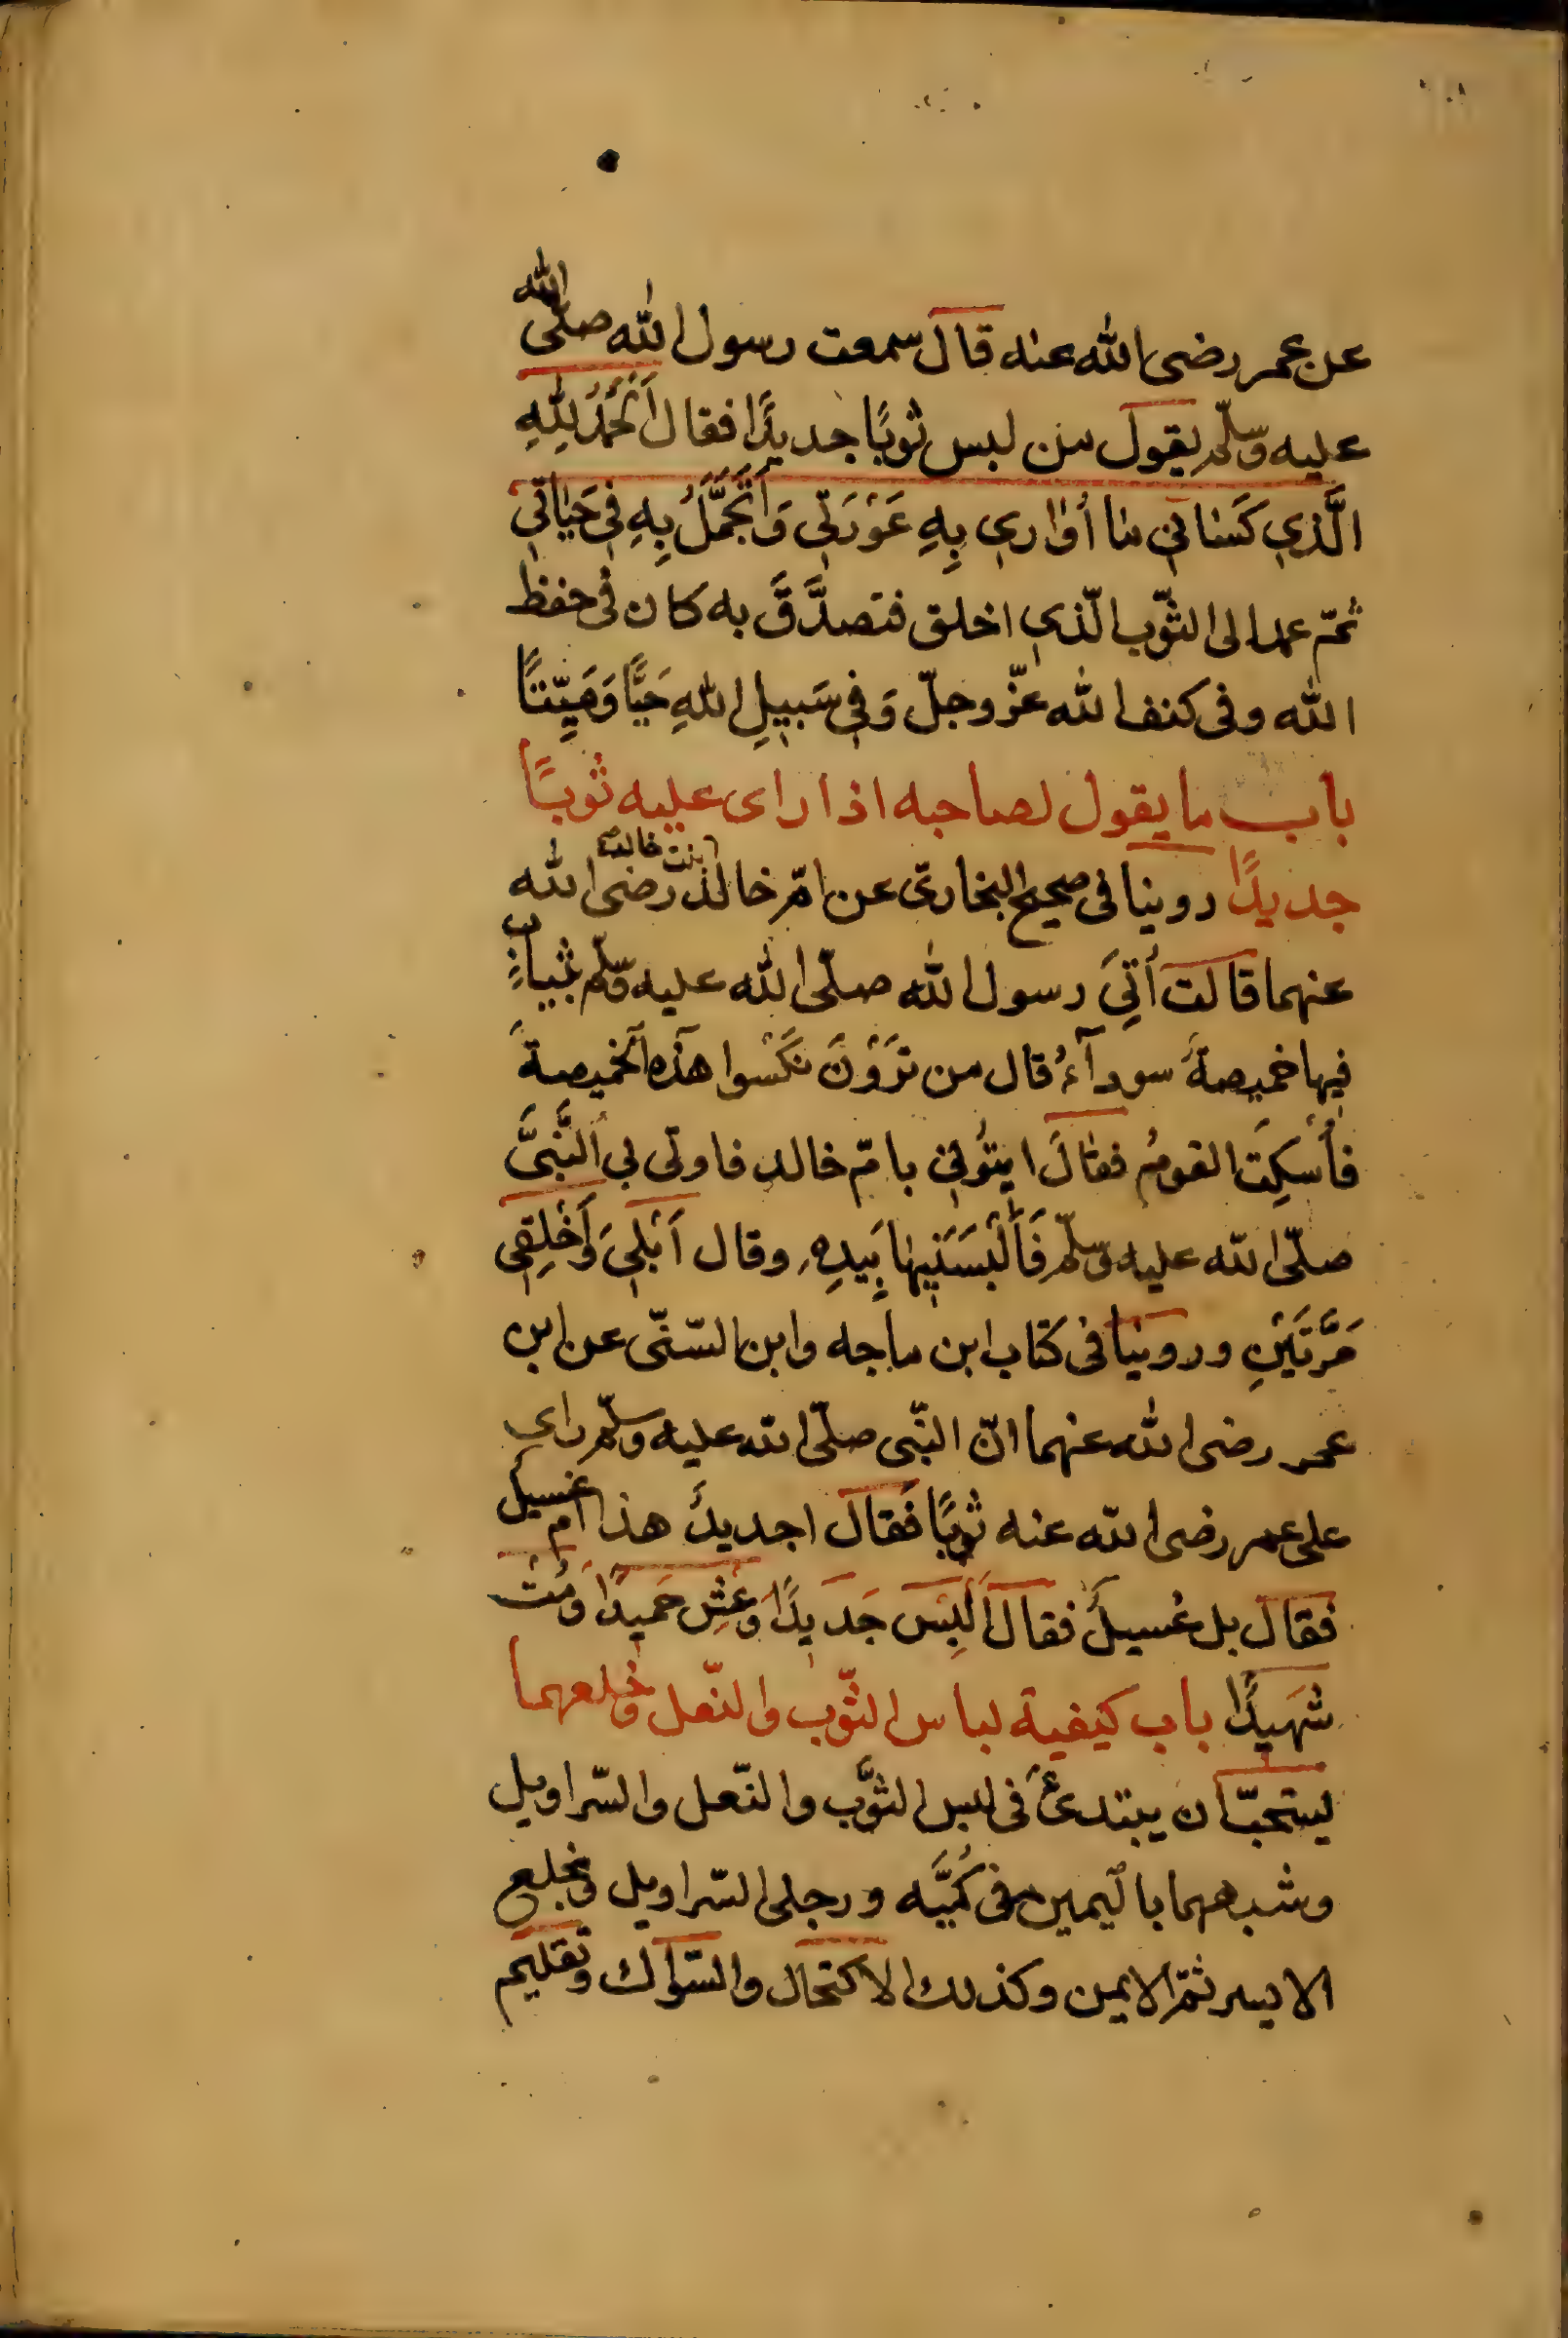 عن عمر رضى الله عنه قال سمعت رسول الله صلّى الله
عليه وسلّم يقول من لبس ثوبًا جديدًا فقال اَلْحَمْدُ لِلّٰهِ
الَّذِي كَسَانِي مَا أُوَارِي بِهِ عَوْرَتِي وَاَتَجَمَّلُ بِهِ فِي حَيَاتِي
ثمّ عمد الى الثّوب الّذى اخلق فتصدَّقَ به كان فى حفظ
الله وفى كنف الله عزّ وجلّ وَفِي سَبِيلِ اللهِ حَيًّا وَمَيِّتًا
باب ما يقول لصاحبه اذا راى عليه ثوبًا
جديدًا روينا فى صحيح البخارى عن امّ خالد بنت خالد رضى الله
عنهما قالت أُتِيَ رسول الله صلّى الله عليه وسلّم بثيابٍ
فيها خميصةٌ سودآءُ قال من تَرَوْنَ نَكْسوا هذه الخميصةَ
فأُسْكِتَ القومُ فقالَ ايتُونِي بامّ خالد فاوتى بى النَّبىَّ
صلّى الله عليه وسلّم فَأَلْبَسَنِيهَا بِيَدِهِ وقال اَبْلِي وَاَخْلِقِى
مَرَّتَيْنِ وروينا فى كتاب ابن ماجه وابن السّنّى عن ابن
عمر رضى الله عنهما انّ النّبى صلّى الله عليه وسلّم راى
على عمر رضى الله عنه ثوبًا فقال اجديدٌ هذا ام غسيل
فقال بل غسيلٌ فقال اَلْبِسْ جَدِيدًا وَعِشْ حَمِيدًا وَمُتْ
شَهِيدًا باب كيفية لباس الثّوب والنّعل وخلعهما
يستحبّ ان يبتدئَ فى لبس الثّوب والنّعل والسّراويل
وشبههما باليمين فى كُمَّيْه ورجلى السّراويل ويخلع
الايسر ثمّ الايمن وكذلك الاكتحال والسّواك وتقليم